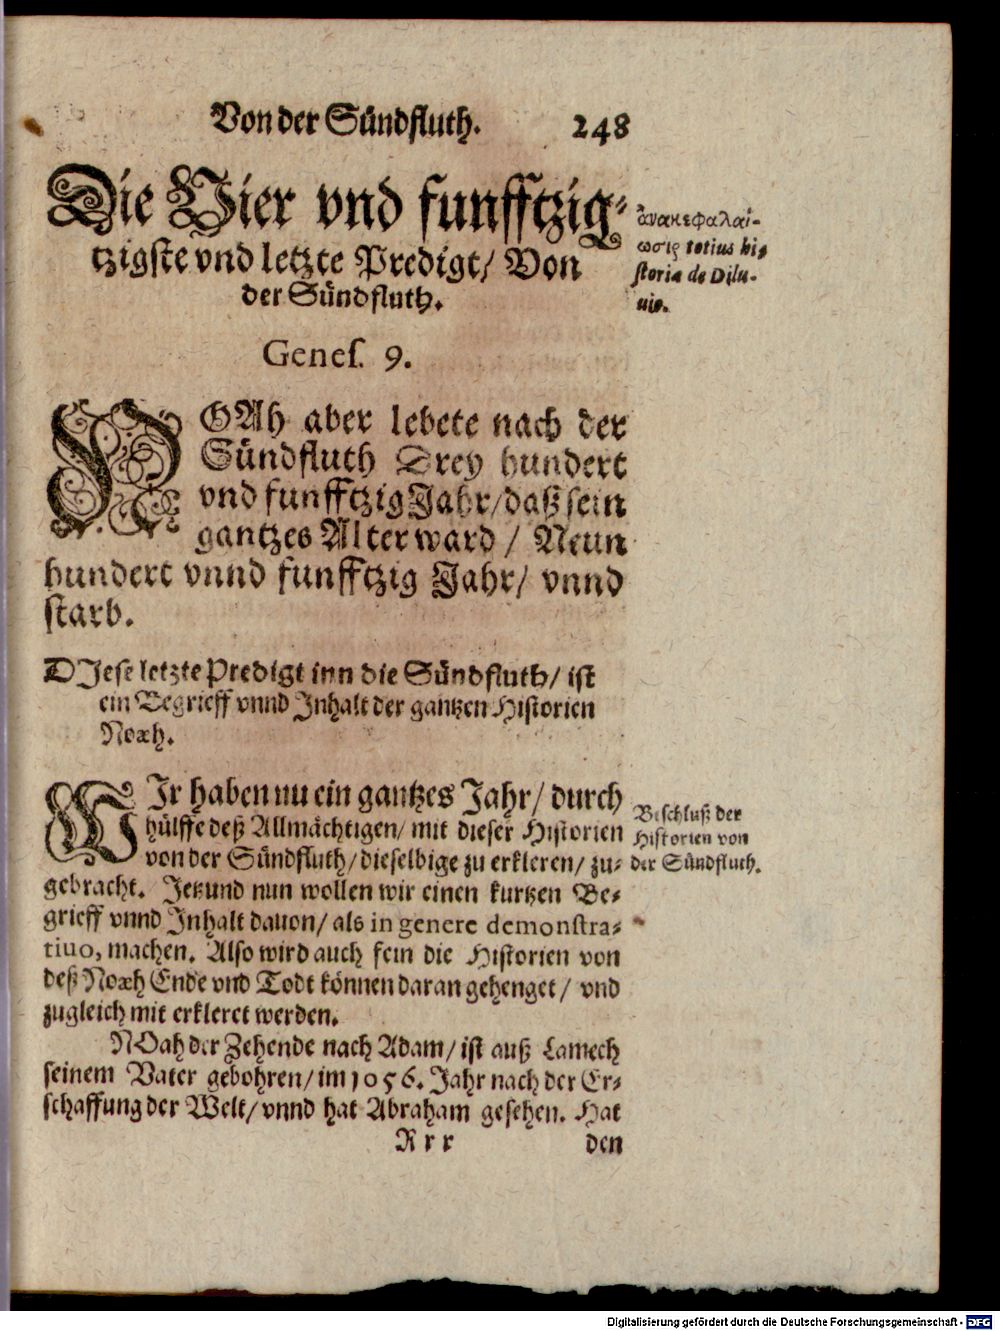 Von der Sündfluth. 248
Die Vier vnd funfftzig-
tzigste vnd letzte Predigt/ Von
der Sündfluth.
ἀνακεφαλαί-
ωσις totius hi-
storiæ de Dilu-
uio.
Genes. 9.
NOAh aber lebete nach der
Sündfluth Drey hundert
vnd funfftzig Jahr/ daß sein
gantzes Alter ward / Neun
hundert vnnd funfftzig Jahr/ vnnd
starb.
DJese letzte Predigt inn die Sündfluth/ ist
ein Begrieff vnnd Jnhalt der gantzen Historien
Noæh.
WJr haben nu ein gantzes Jahr/ durch
hülffe deß Allmächtigen/ mit dieser Historien
von der Sündfluth/ dieselbige zu erkleren/ zu-
gebracht. Jetzund nun wollen wir einen kurtzen Be-
grieff vnnd Jnhalt dauon/ als in genere demonstra-
tiuo, machen. Also wird auch fein die Historien von
deß Noæh Ende vnd Todt können daran gehenget/ vnd
zugleich mit erkleret werden.
Beschluß der
Historien von
der Sündfluth.
NOah der Zehende nach Adam/ ist auß Lamech
seinem Vater gebohren/ im 1056. Jahr nach der Er-
schaffung der Welt/ vnnd hat Abraham gesehen. Hat
Rrr den
Digitalisierung gefördert durch die Deutsche Forschungsgemeinschaft - DFG